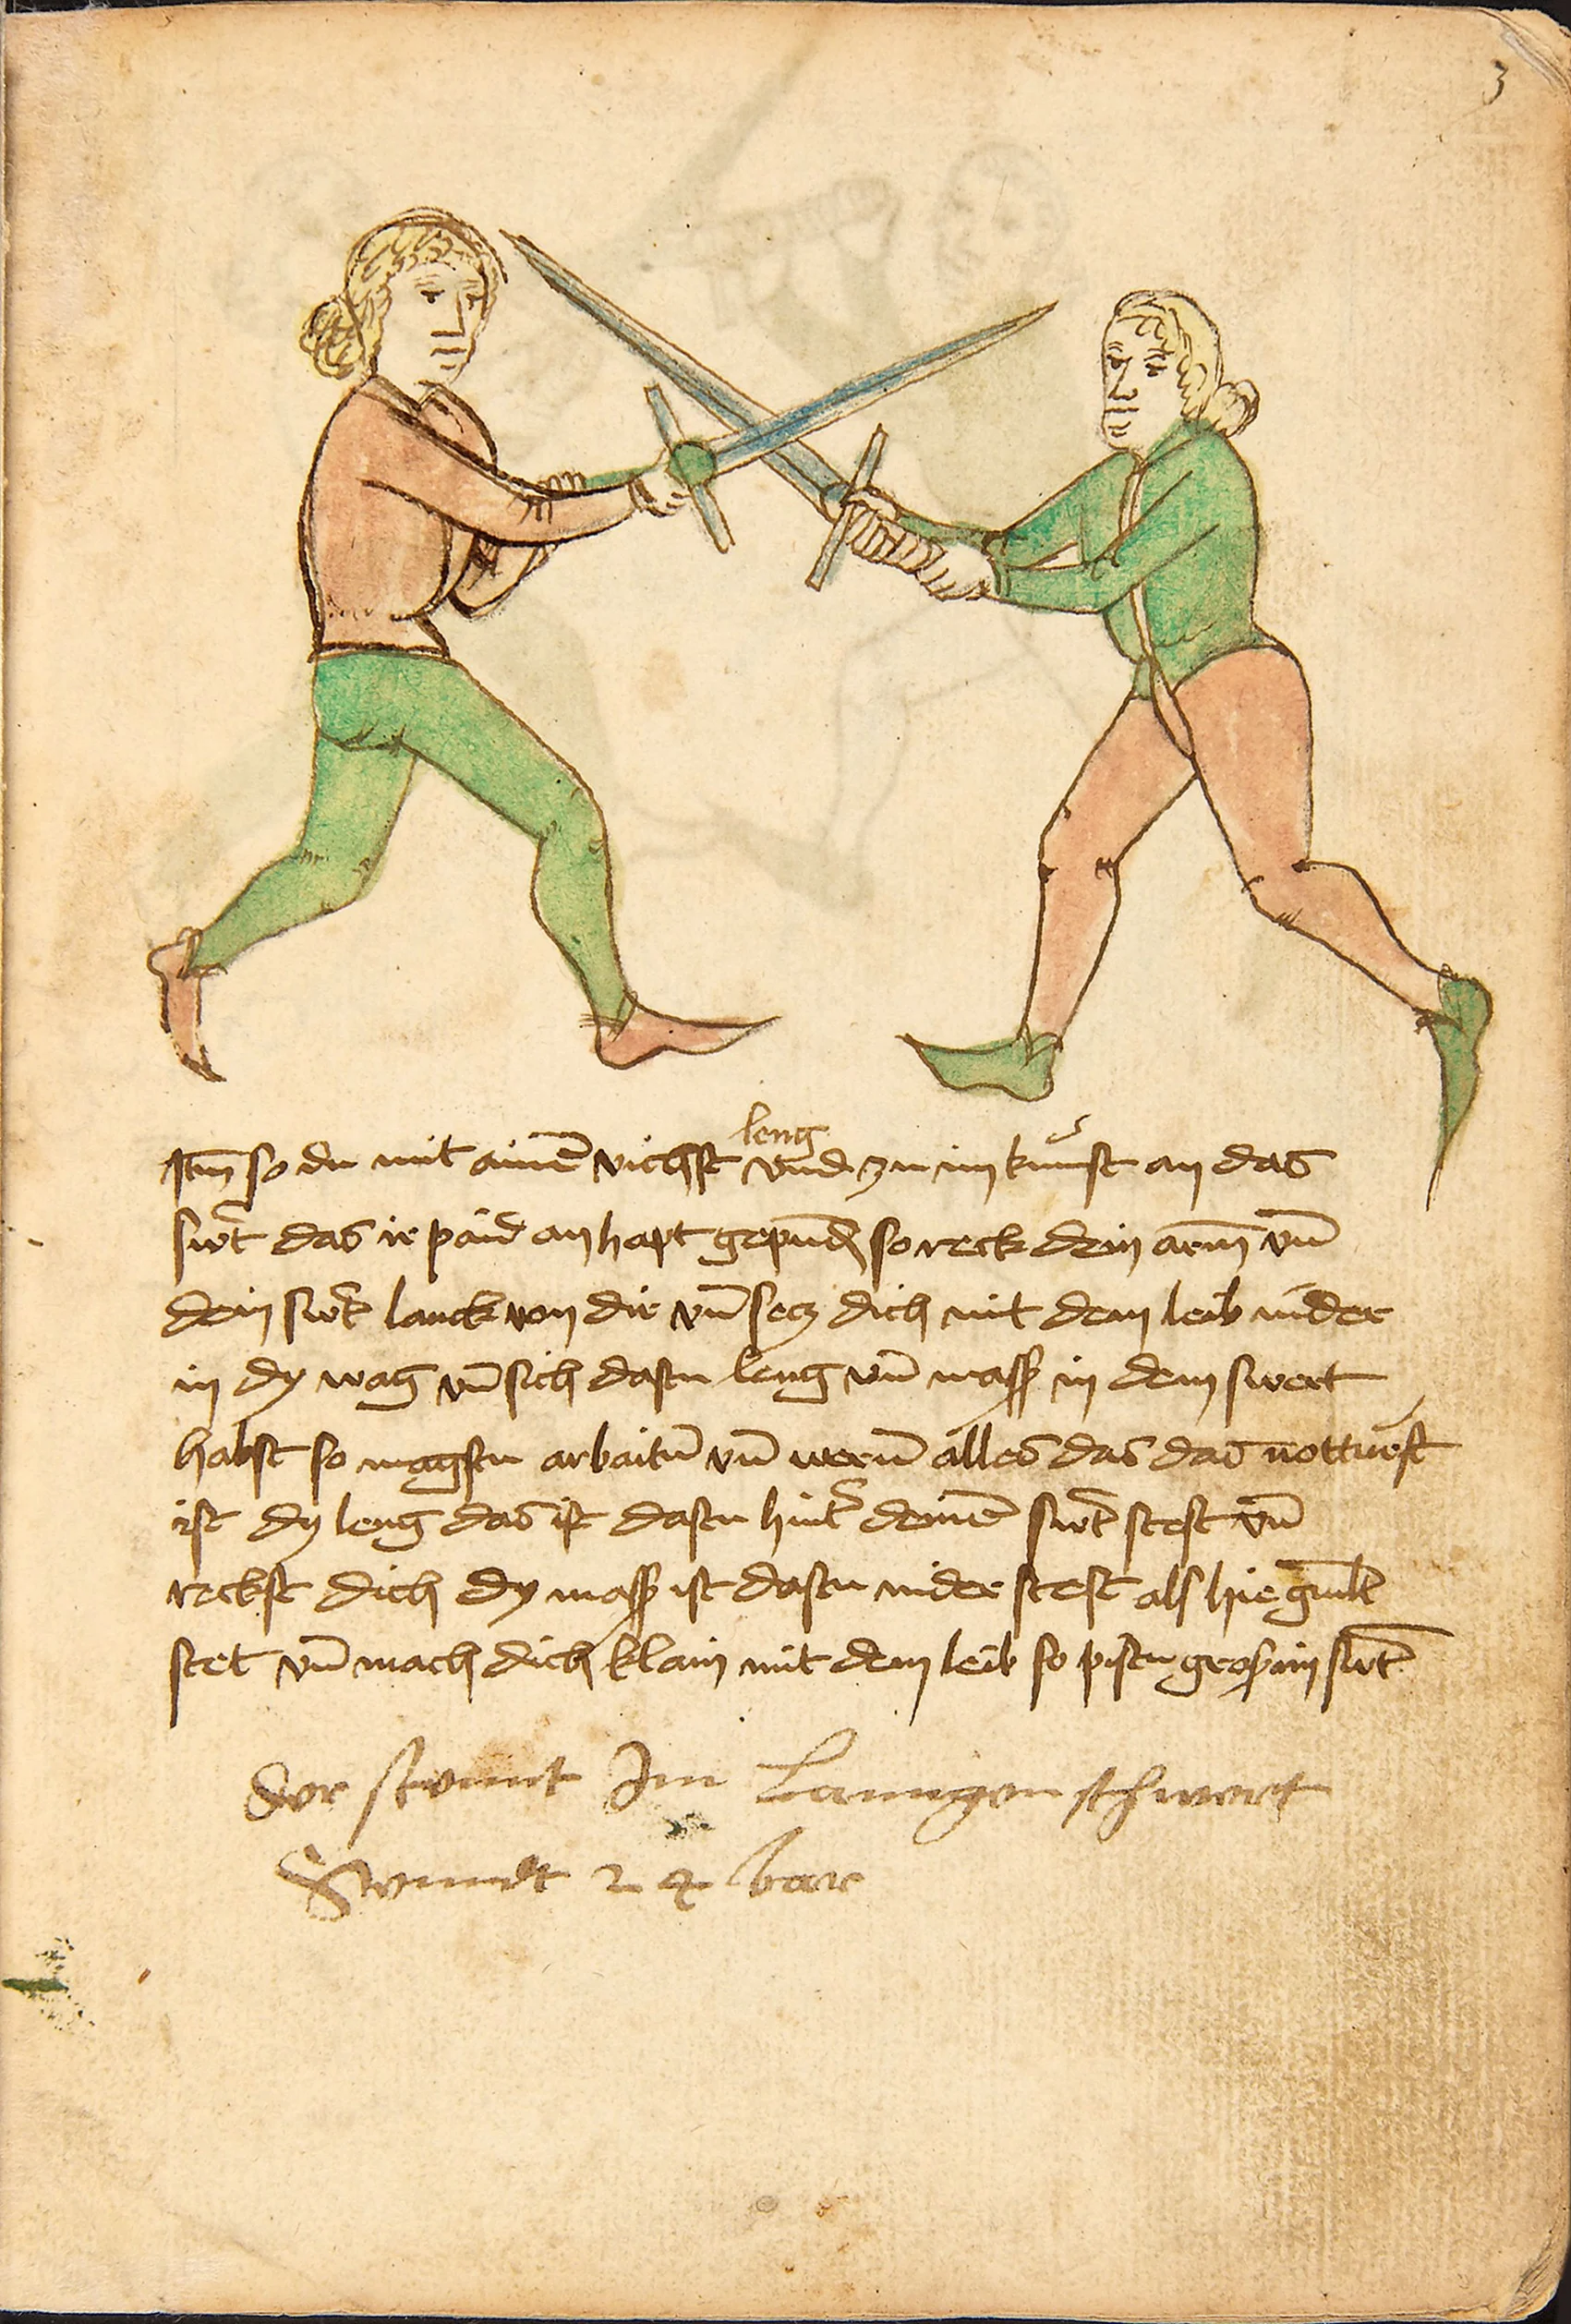 3
leng
Itm̄ so du mit ainē vichst vnd zu im kumst an das
swt̄ das ir paid an hapt gepundn̄ so reck dein arm̄ vn̄
dein swt̄ lanck von dir vn̄ secz dich mit dem leib nider
in dy wag vn̄ sich dastu leng vn̄ mass in dem swert
habst so magstu arbaitn̄ vn̄ wern̄ alles das das notturft
ist dy leng das ist dastu hint̄ deinē swt̄ stest vn̄
reckst dich dy mass ist dastu nider stest als hie gmlt
stet vn̄ mach dich klain mit dem leib so pistu gros im swt̄
der Im Lanngen schwert
2 4